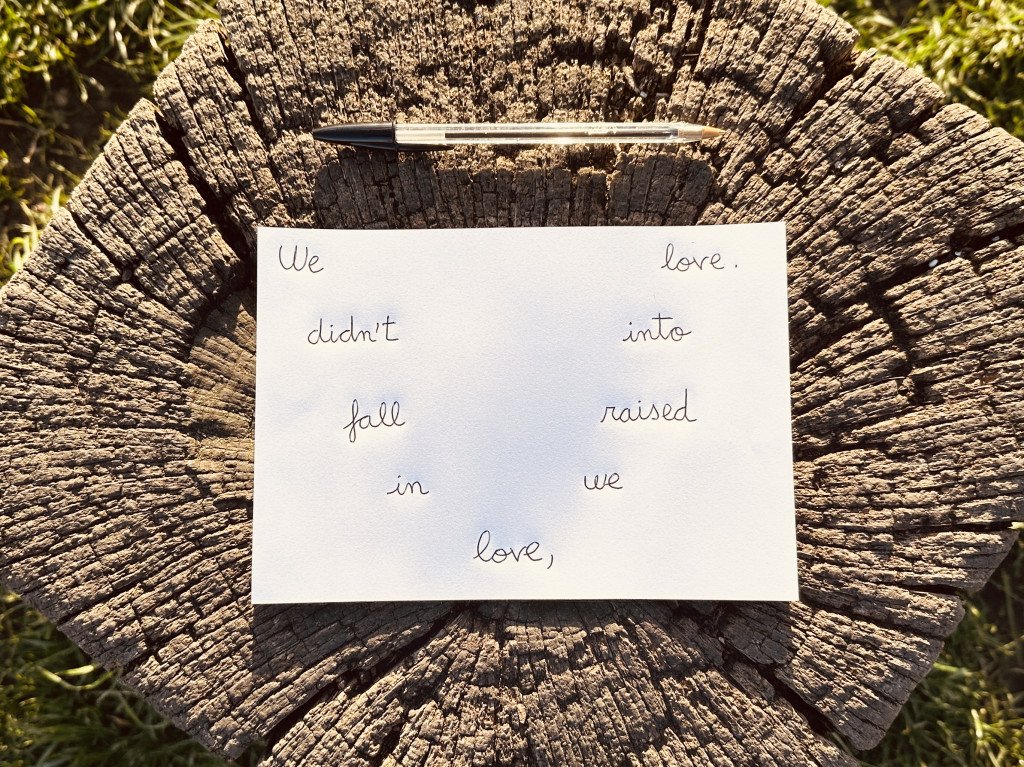 We
didn't
fall
in
love,
we
raised
into
love.